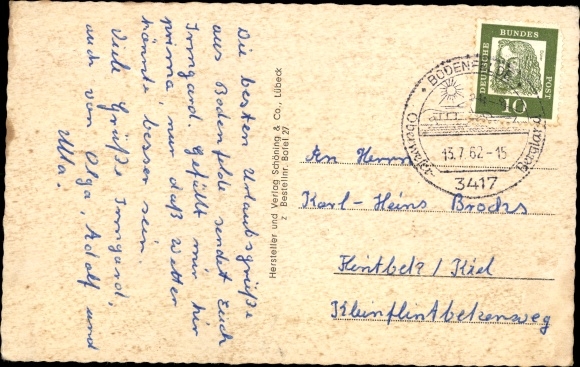 Die besten Urlaubsgrüße
aus Bodenfelde sendet Euch
Irmgard. Gefällt mir hier
prima, nur daß Wetter
könnte besser sein.
Viele Grüße Irmgard,
auch von Olga, Adolf und
Ulla.
Hersteller und Verlag Schöning & Co., Lübeck
z Bestellnr. Bofel 27
DEUTSCHE
BUNDES
POST
10
BODENF
Oberweser
Bergland
13.7.62-15
3417
An Herrn
Karl-Heins
Flintbek / Kiel
Kleinflintbekerweg